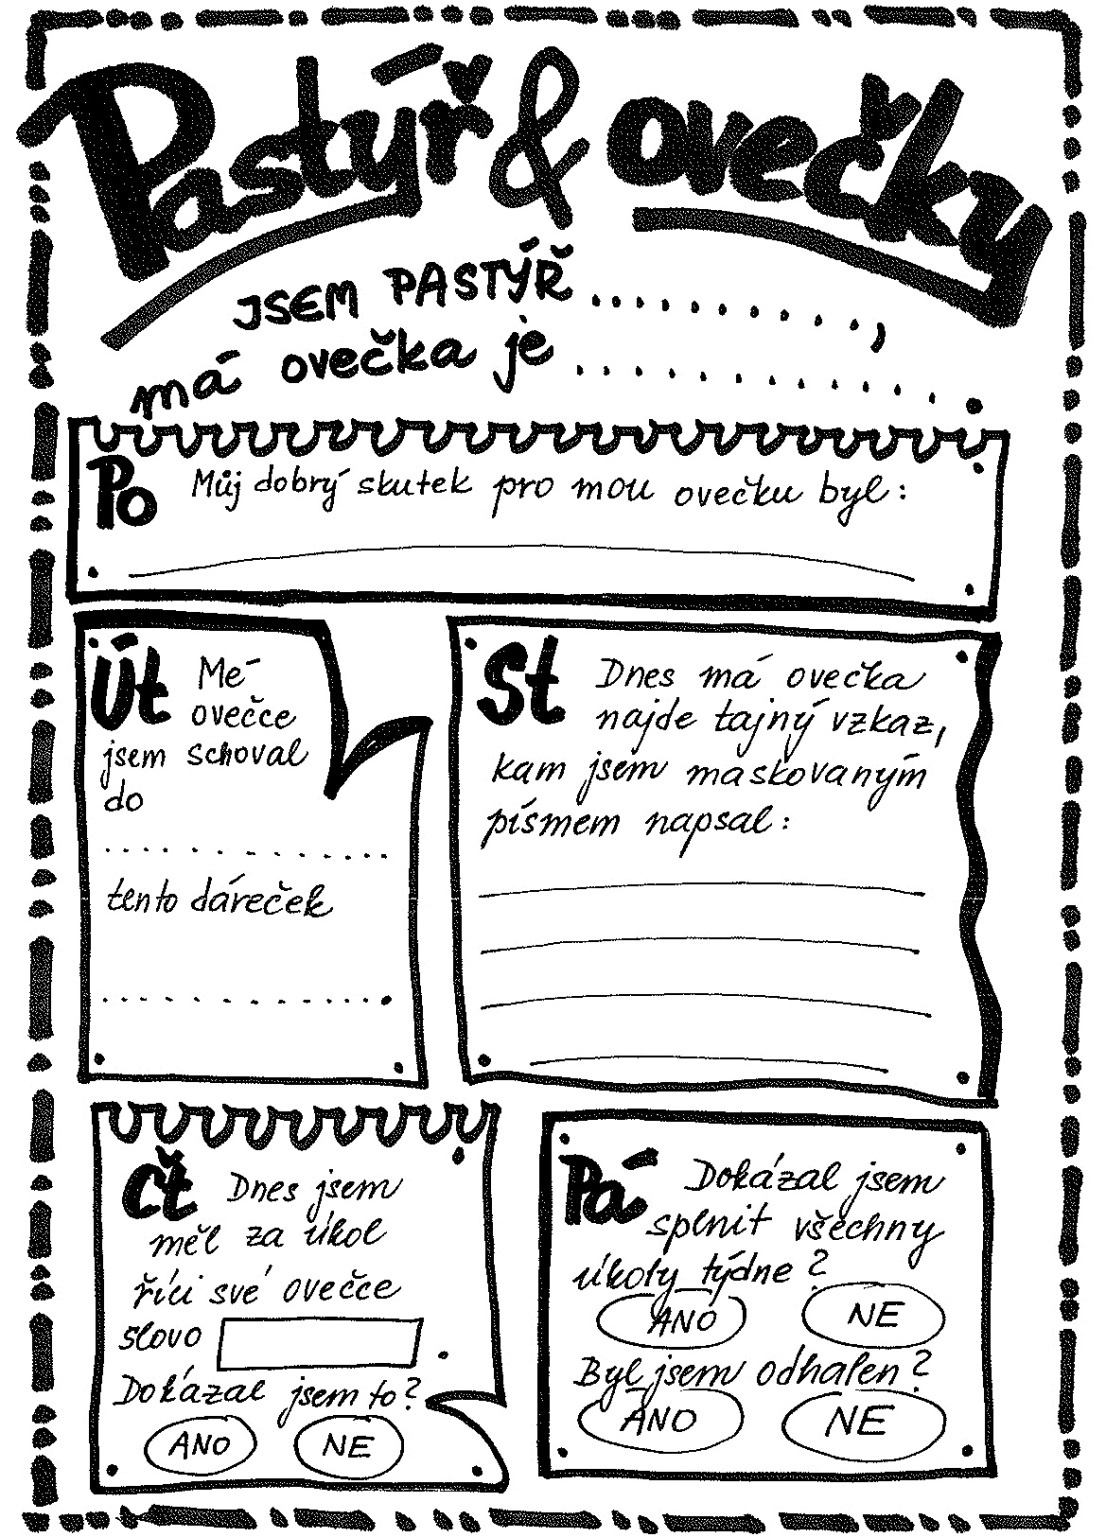 Pastýř & ovečky
JSEM PASTÝŘ..........,
má ovečka je ............
Po Můj dobrý skutek pro mou ovečku byl:
Út Mé
ovečce
jsem schoval
do
..............
tento dáreček
..............
St Dnes má ovečka
najde tajný vzkaz,
kam jsem maskovaným
písmem napsal:
Čt Dnes jsem
měl za úkol
říci své ovečce
slovo .
Dokázal jsem to?
ANO NE
Pá Dokázal jsem
splnit všechny
úkoly týdne?
ANO NE
Byl jsem odhalen?
ANO NE